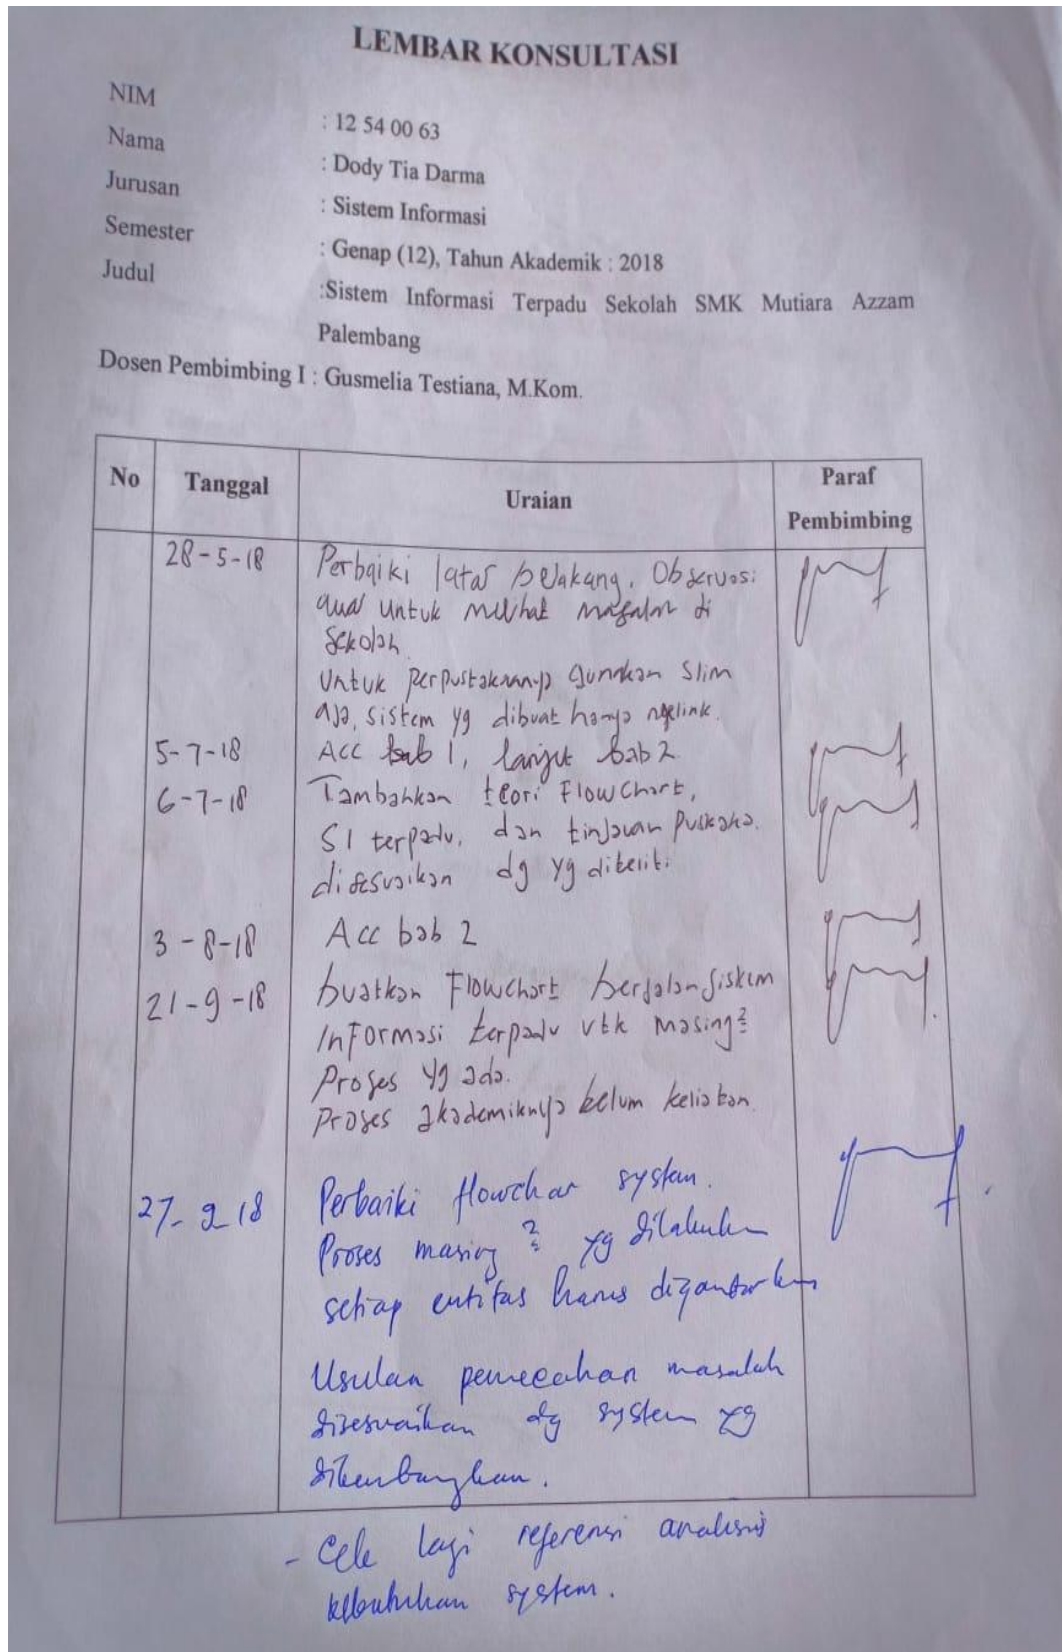 LEMBAR KONSULTASI
NIM : 12 54 00 63
Nama : Dody Tia Darma
Jurusan : Sistem Informasi
Semester : Genap (12), Tahun Akademik : 2018
Judul :Sistem Informasi Terpadu Sekolah SMK Mutiara Azzam
Palembang
Dosen Pembimbing I : Gusmelia Testiana, M.Kom.
No Tanggal Uraian Paraf
Pembimbing
28-5-18 Perbaiki latar belakang, Observasi
awal untuk melihat masalah di
sekolah
untuk perpustakaannya gunakan slim
aja, sistem yg dibuat hanya ngelink.
5-7-18 Acc bab 1, lanjut bab 2
6-7-18 Tambahkan teori Flowchart,
SI terpadu, dan tinjauan pustaka.
disesuaikan dg yg diteliti
3-8-18 Acc bab 2
21-9-18 buatkan Flowchart berjalan sistem
Informasi terpadu utk masing2
Proses yg ada.
Proses akademiknya belum keliatan.
27-9-18 Perbaiki flowchar system.
Proses masing2 yg dilakukan
setiap entitas harus digambarkan
Usulan pemecahan masalah
disesuaikan dg system yg
dikembangkan.
- Cek lagi referensi analisis
kebutuhan system.